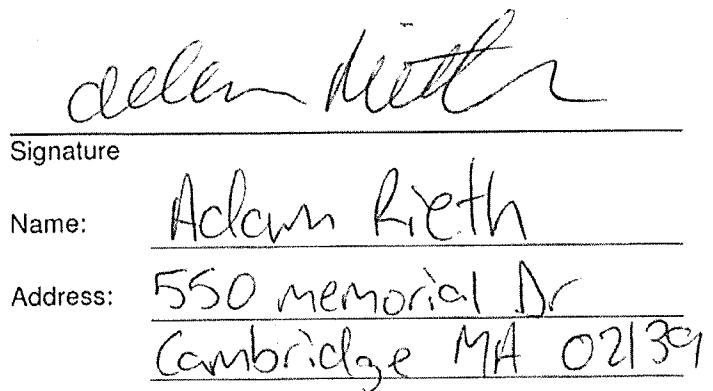 Adam Rieth
Signature
Name: Adam Rieth
Address: 550 memorial Dr
Cambridge MA 02139